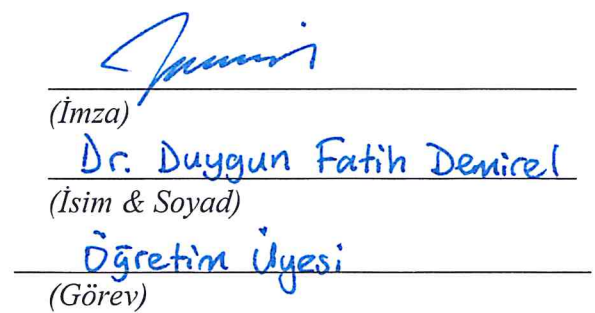 (İmza)
Dr. Duygun Fatih Demirel
(İsim & Soyad)
Öğretim Üyesi
(Görev)